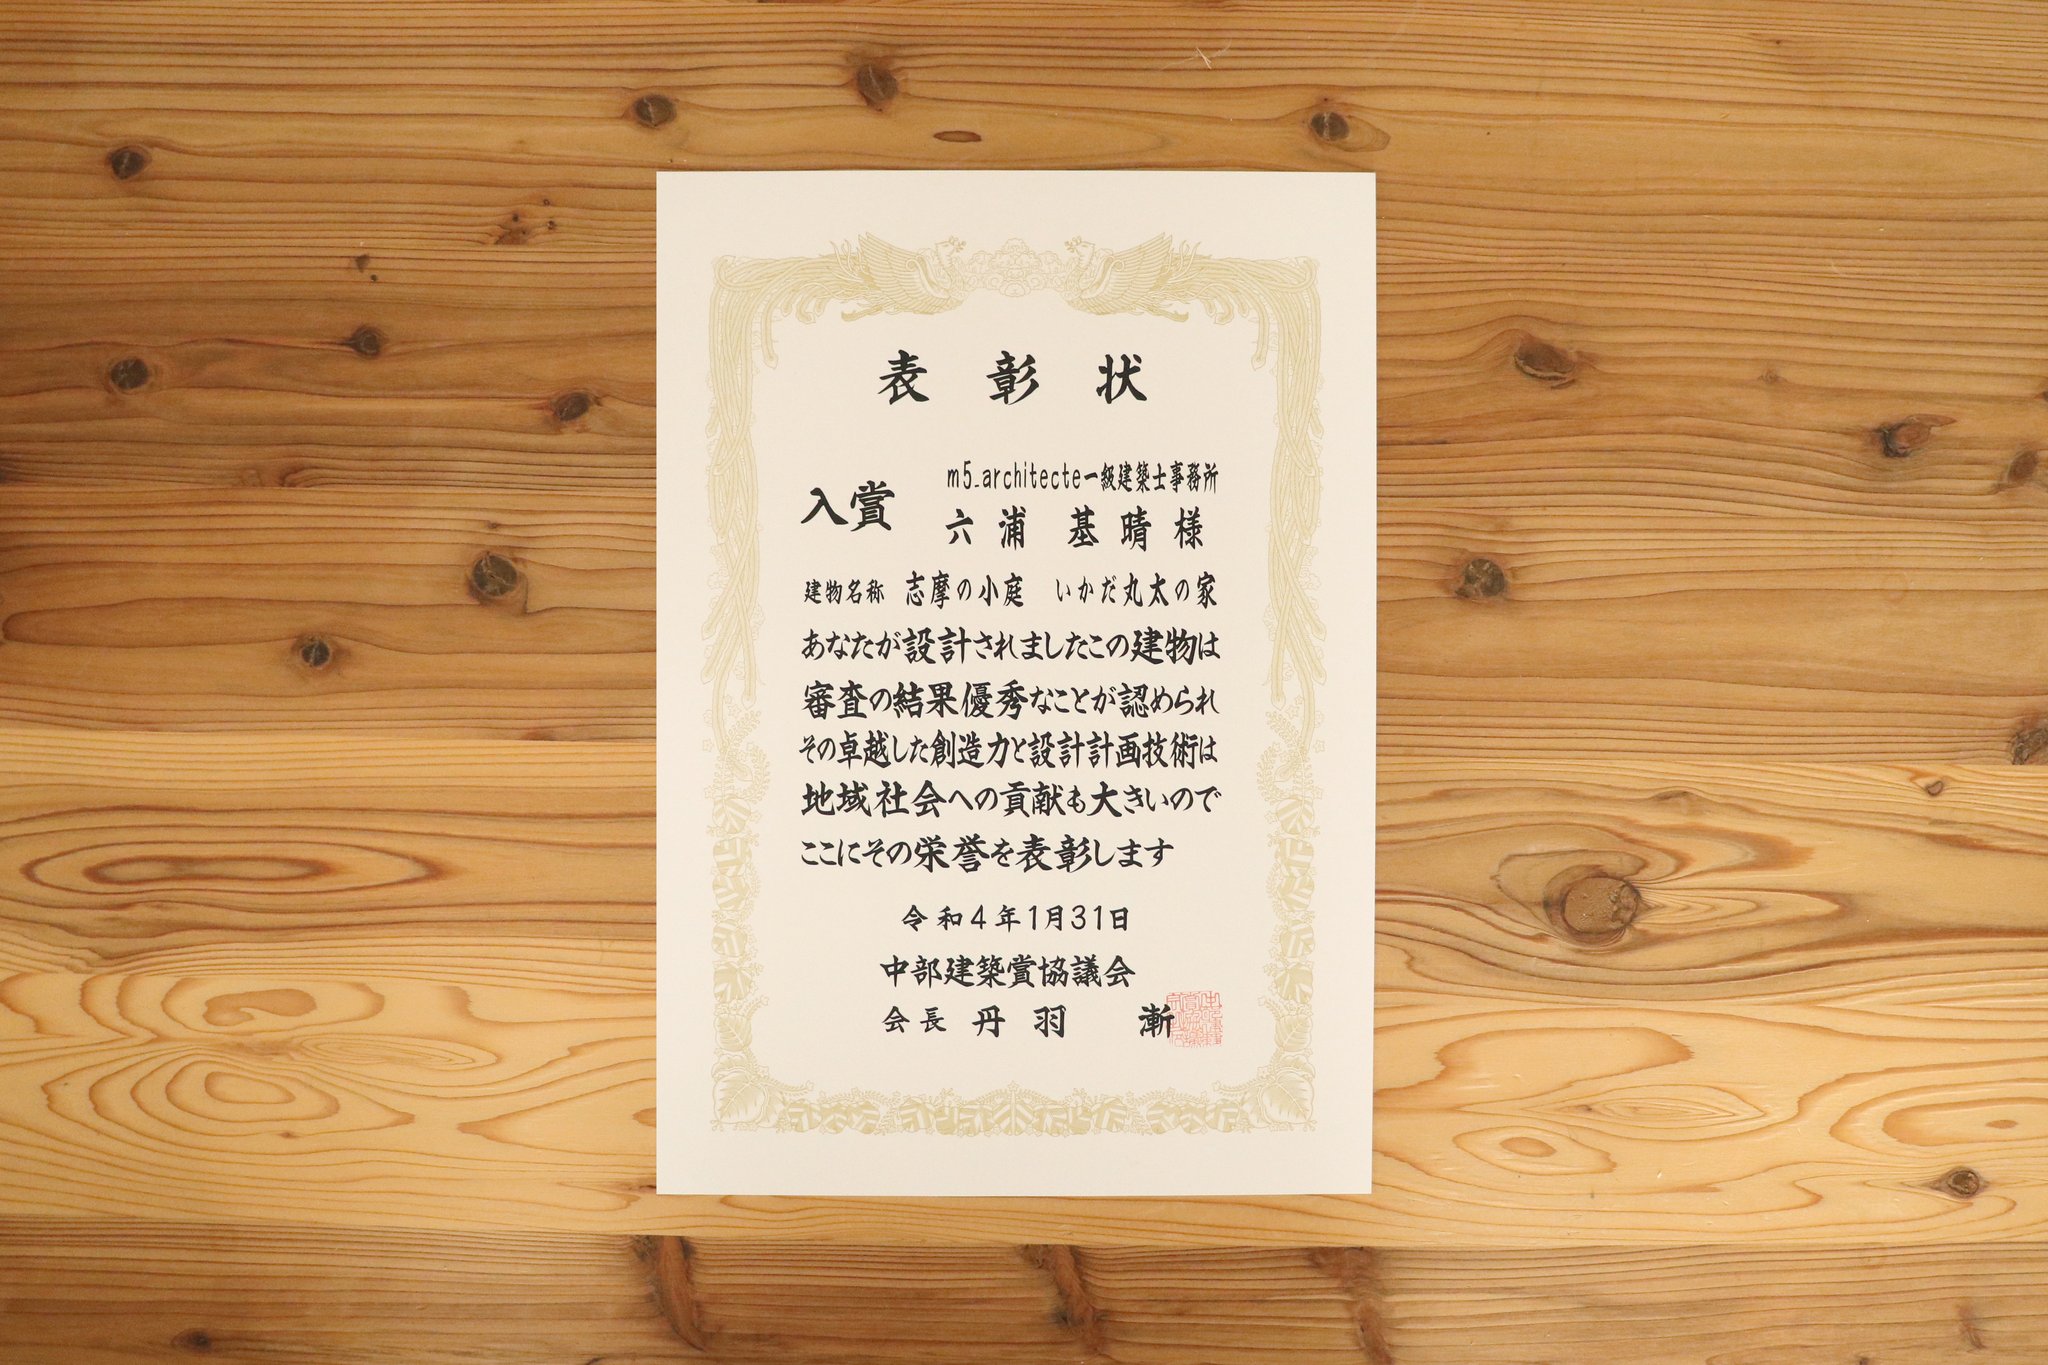 表彰状
m5_architecte一級建築士事務所
入賞 六浦 基晴様
建物名称 志摩の小庭 いかだ丸太の家
あなたが設計されましたこの建物は
審査の結果優秀なことが認められ
その卓越した創造力と設計計画技術は
地域社会への貢献も大きいので
ここにその栄誉を表彰します
令和4年1月31日
中部建築賞協議会
会長 丹羽 漸